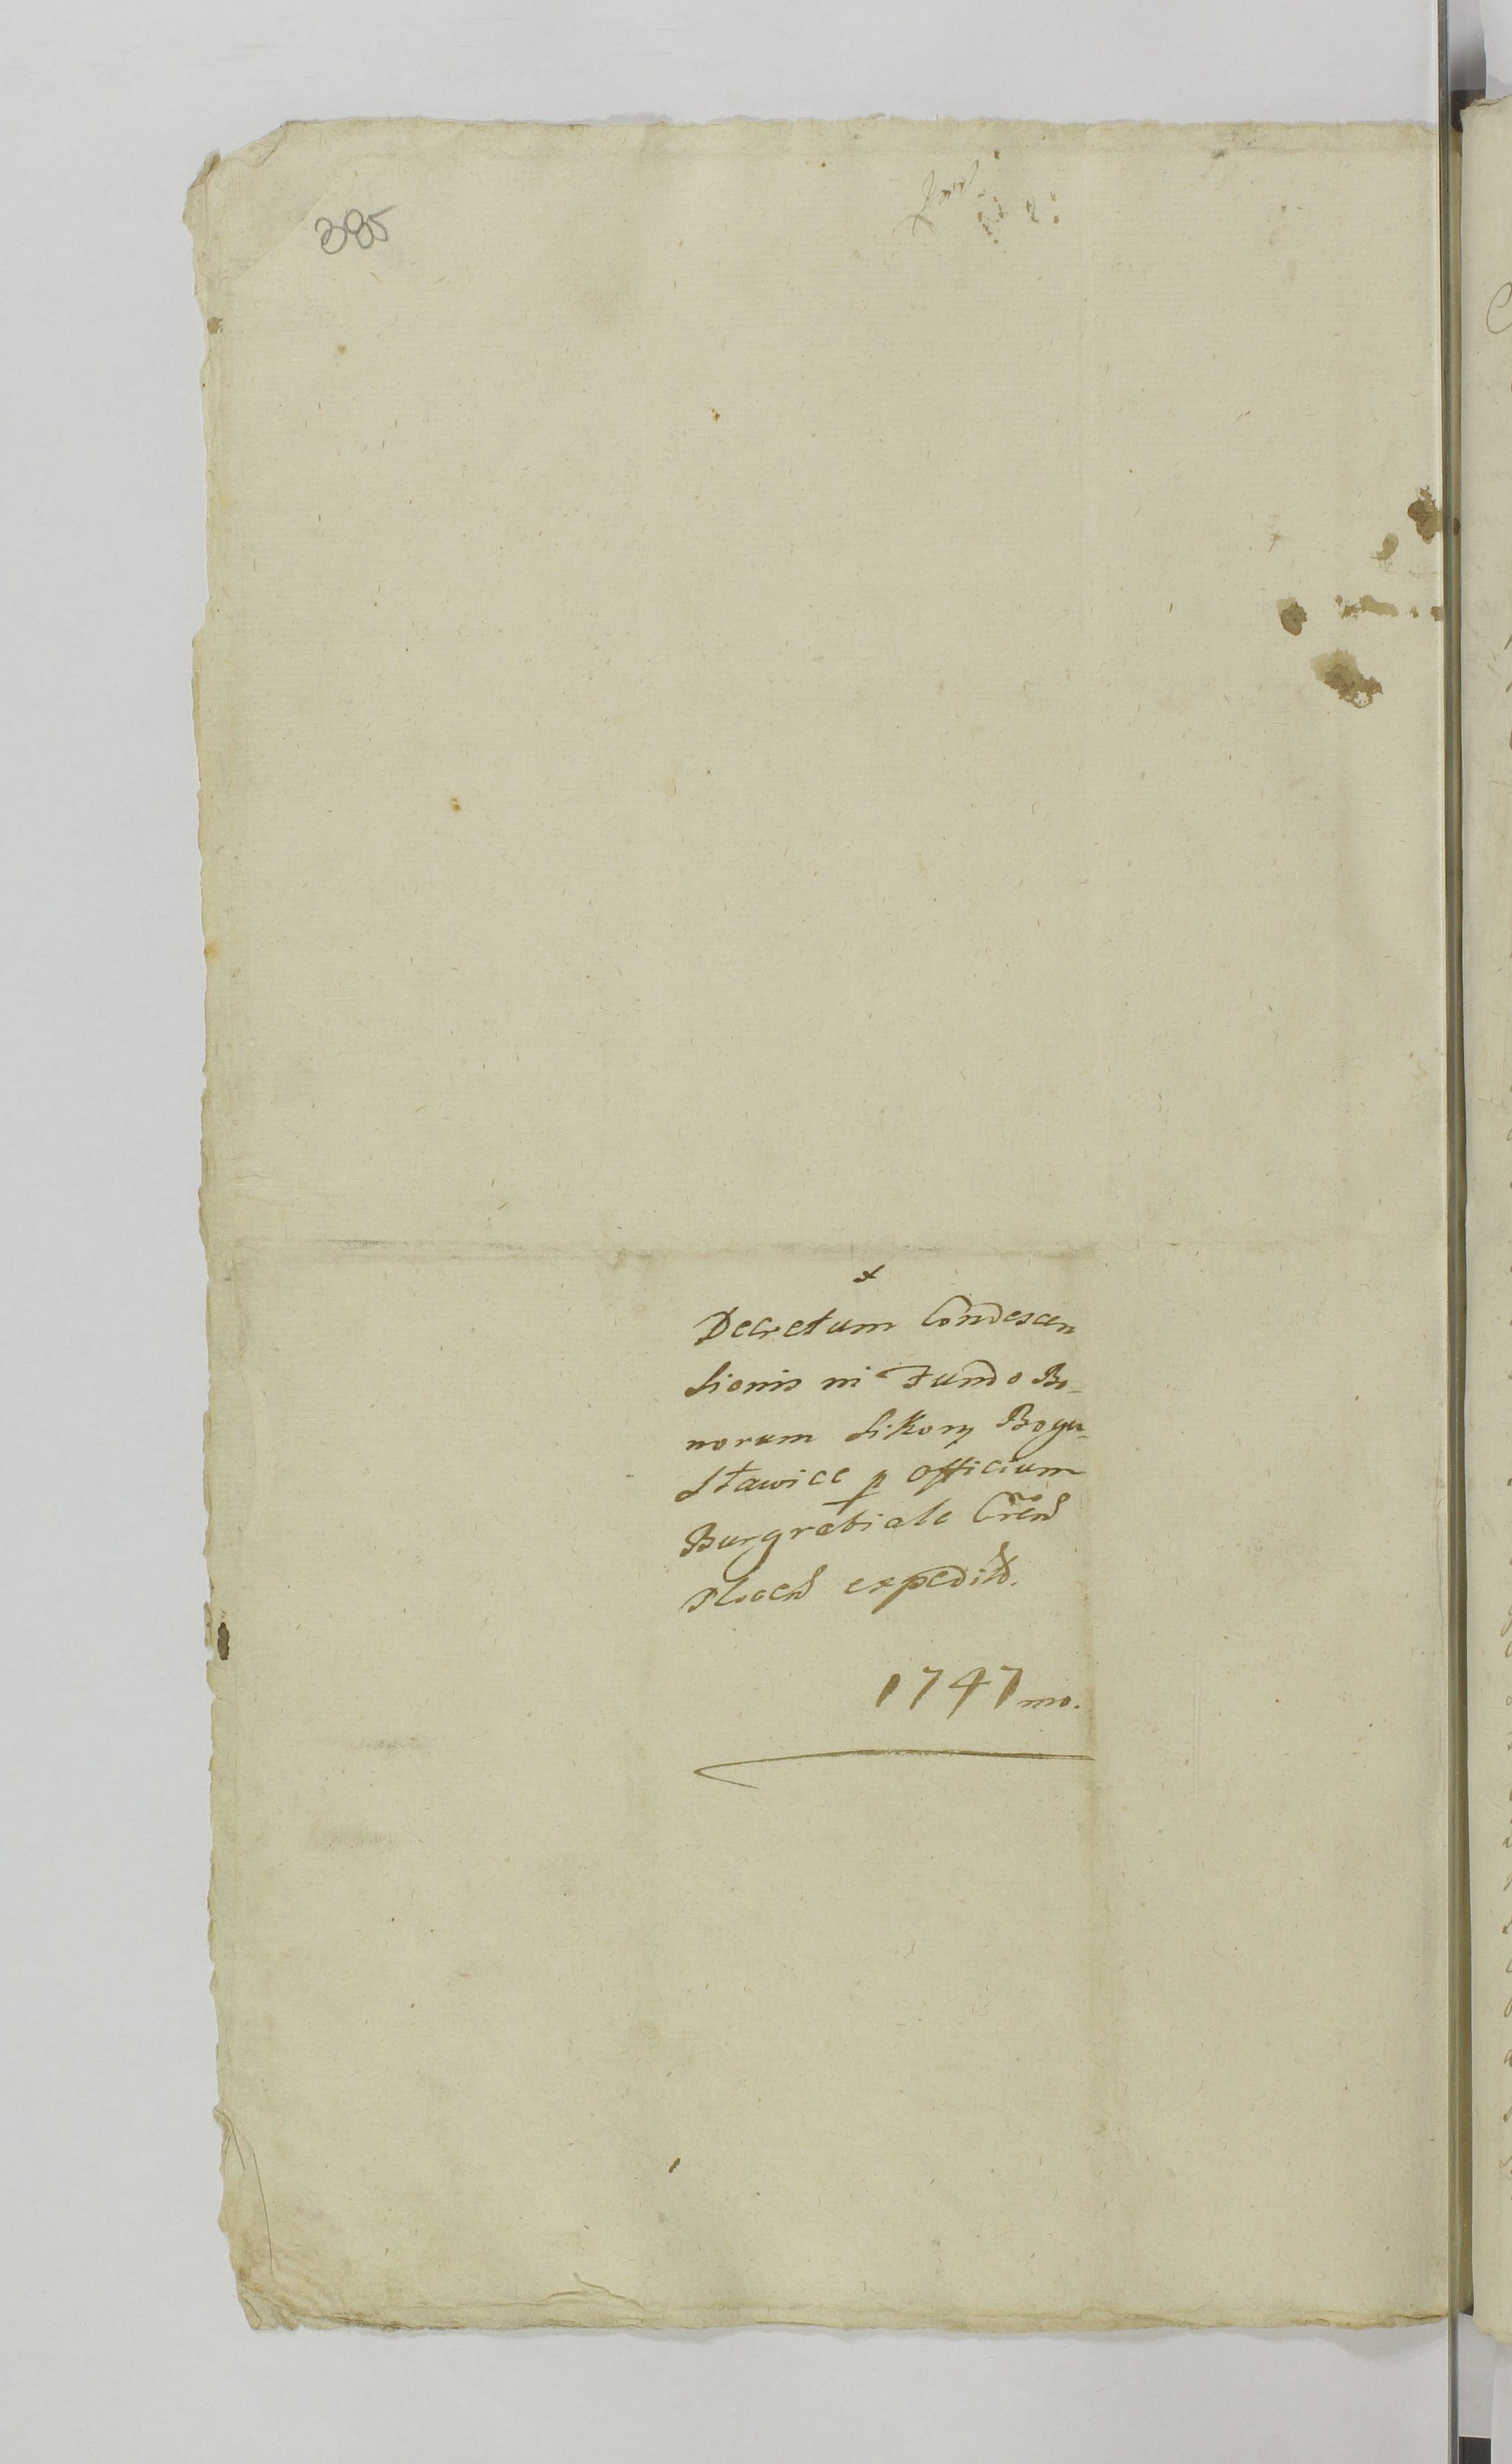 385
Decretum Condescen
sionis in Fundo Bo-
norum Sikory Bogu-
sławice p officium
Burgrabiale Crens
Plocens expedit.
1747mo.